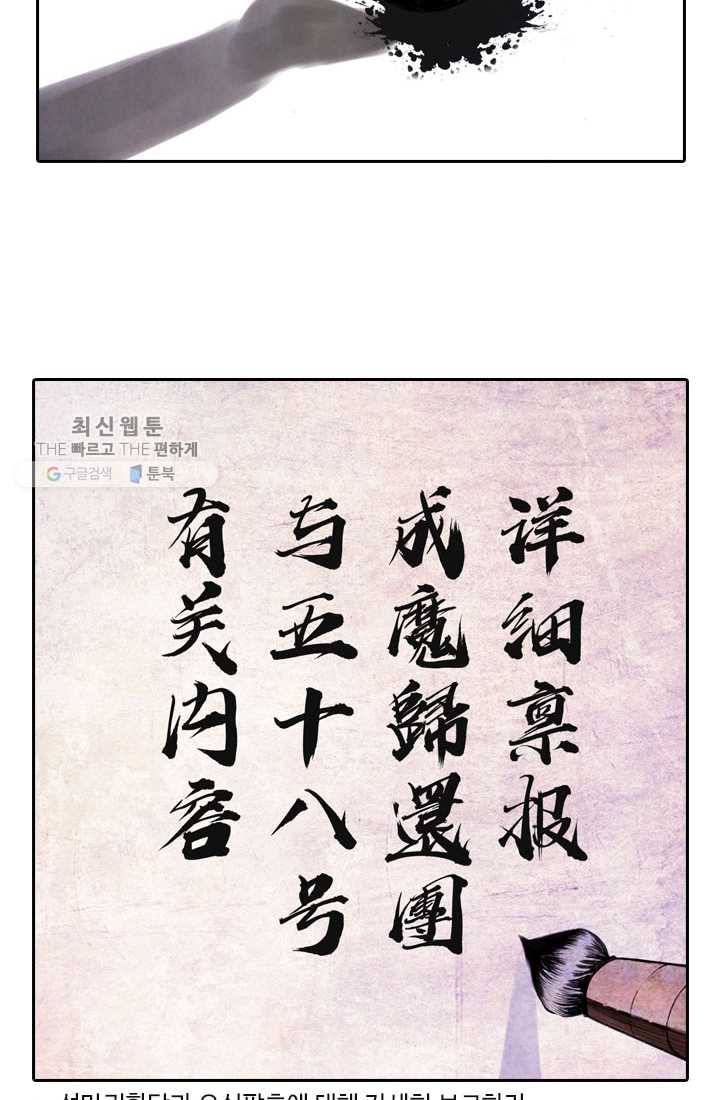 최신웹툰
THE 빠르고 THE 편하게
구글검색 툰북
详细禀报
成魔歸還團
与五十八号
有关内容